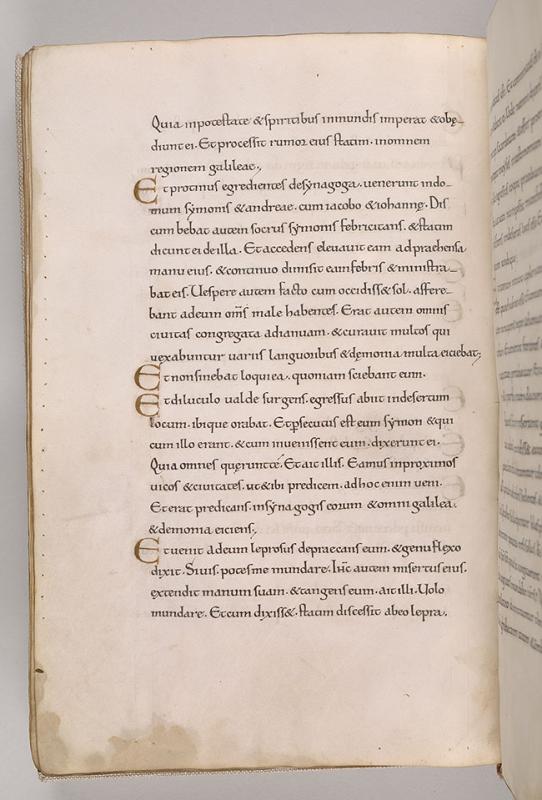 Quia inpotestate &spiritibus inmundis imperat &obę-
diunt ei. Et processit rumor eius statim. inomnem
regionem galileae.,
Et protinus egredientes desynagoga. uenerunt indo-
mum symonis &andreae. cum iacobo &iohannę. Dis
cum bebat autem socrus symonis febricitans. &statim
dicunt ei deilla. Et accedens eleuauit eam adpraehensa
manu eius. &continuo dimisit eam febris &ministra-
bat eis. Uespere autem facto cum occidiss& sol. affere-
bant adeum om̄s male habentes. Erat autem omnis
ciuitas congregata adianuam. &curauit multos qui
uexabuntur uariis languoribus &dęmonia multa eiciebat;
Et non sinebat loqui ea. quoniam sciebant eum.
Et diluculo ualde surgens. egressus abiit indesertum
locum. ibique orabat. Et p̄secutus est eum symon &qui
cum illo erant. &cum inuenissent eum. dixerunt ei.
Quia omnes quęrunt te. Et ait illis. Eamus inproximos
uicos &ciuitates. ut &ibi predicem. ad hoc enim ueni.
Et erat predicans. insynagogis eorum &omni galilea.
&demonia eiciens.
Et uenit adeum leprosus depraecans eum. &genu flexo
dixit. Siuis. potes me mundare. ih̄c autem misertus eius.
extendit manum suam. &tangens eum. ait illi. Uolo
mundare. Et cum dixiss&. statim discessit abeo lepra.